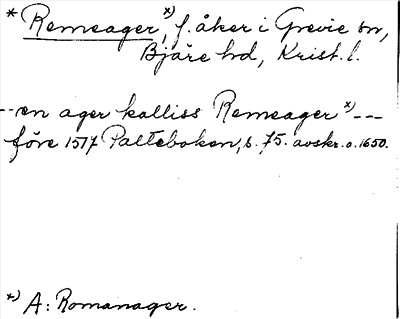 * Remeager, *) f. åker i Grevie sn,
Bjäre hd, Krist. l.
-- en ager kalliss Remeager *) ---
före 1517 Palteboken, s. 75. avskr. o. 1650.
*) A: Romanager.